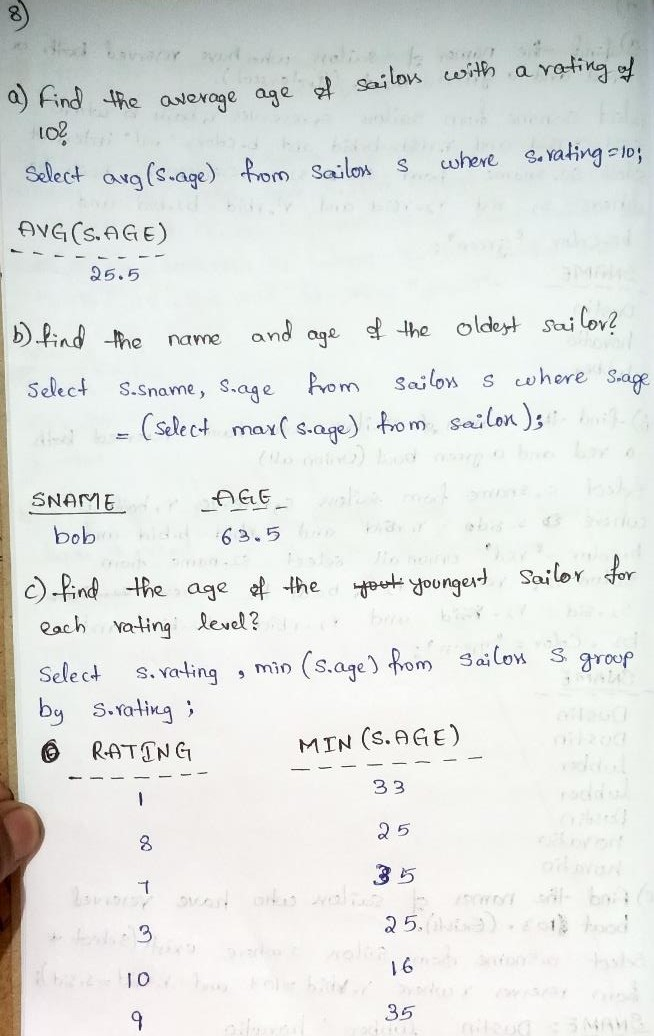 8)
a) Find the average age of sailors with a rating of
10?
Select avg(S.age) from sailors s where s.rating=10;
AVG(S.AGE)
25.5
b) find the name and age of the oldest sailor?
Select S.sname, S.age from sailors s where S.age
= (select max(s.age) from sailors);
SNAME AGE
bob 63.5
c) find the age of the youngest sailor for
each rating level?
Select s.rating, min (s.age) from sailors S group
by s.rating;
RATING MIN (S.AGE)
1 33
8 25
7 35
3 25.
10 16
9 35